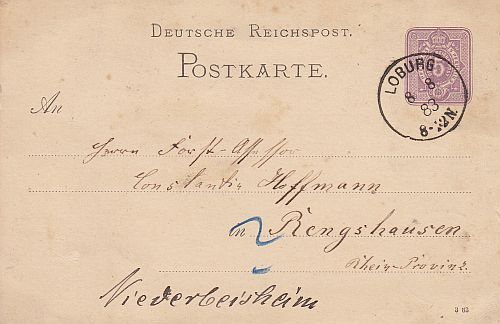 DEUTSCHE REICHSPOST.
POSTKARTE.
5
LOBURG
8 8
83
8-12N.
An
Herrn Forst-Assessor
Constantin Hoffmann
in Rengshausen
Rhein-Provinz.
Niederbeisheim
3 83